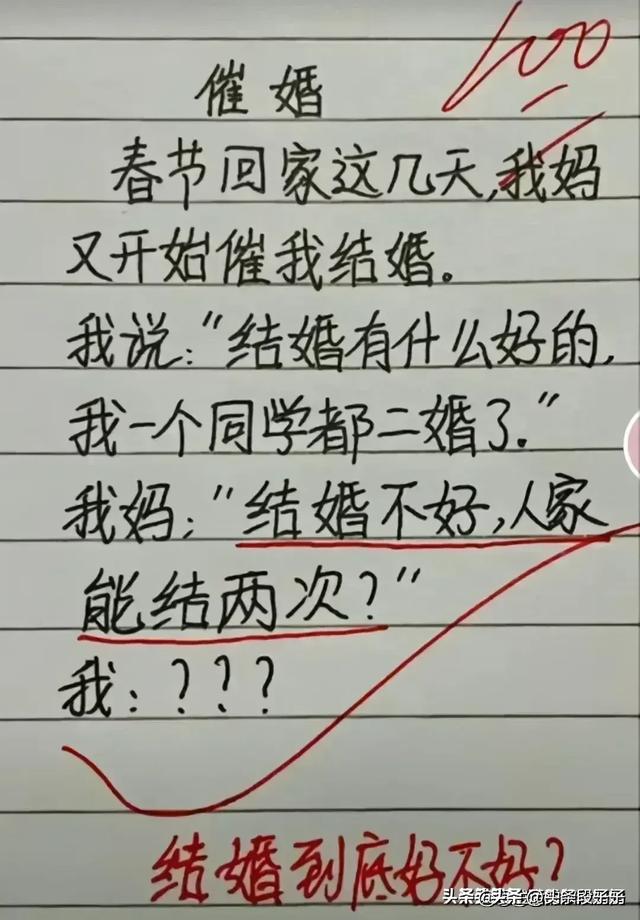 100
催婚
春节回家这几天,我妈
又开始催我结婚。
我说:"结婚有什么好的,
我一个同学都二婚了."
我妈:"结婚不好,人家
能结两次?"
我:???
结婚到底好不好?
头条 头条 @头条段子好